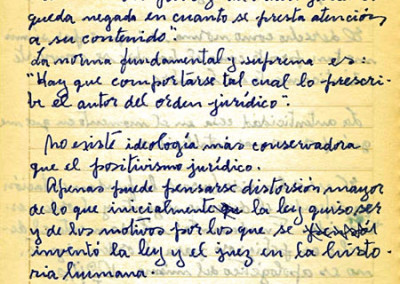 queda negada en cuanto se presta atención
a su contenido".
La norma fundamental y suprema es:
"Hay que comportarse tal cual lo prescri-
be el autor del orden jurídico".
No existe ideología más conservadora
que el positivismo jurídico.
Apenas puede pensarse distorsión mayor
de lo que inicialmente la ley quiso ser
y de los motivos por los que se
inventó la ley y el juez en la histo-
ria humana.